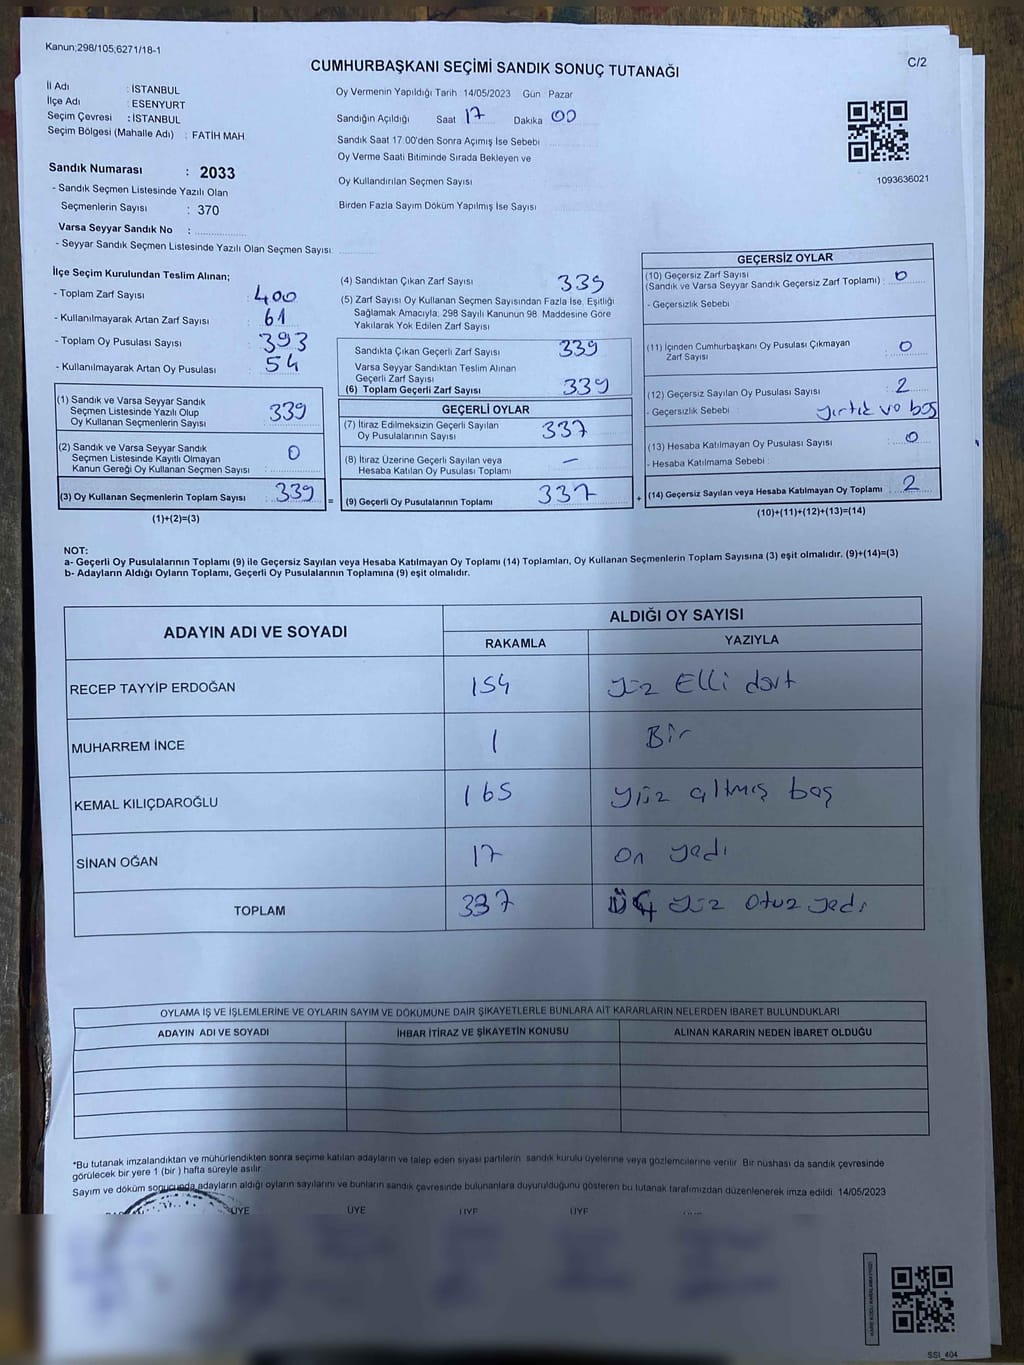 Kanun;298/105;6271/18-1
C/2
CUMHURBAŞKANI SEÇİMİ SANDIK SONUÇ TUTANAĞI
İl Adı : İSTANBUL
İlçe Adı : ESENYURT
Seçim Çevresi : İSTANBUL
Seçim Bölgesi (Mahalle Adı) : FATİH MAH.
Sandık Numarası : 2033
- Sandık Seçmen Listesinde Yazılı Olan
Seçmenlerin Sayısı : 370
Varsa Seyyar Sandık No :
- Seyyar Sandık Seçmen Listesinde Yazılı Olan Seçmen Sayısı:
Oy Vermenin Yapıldığı Tarih : 14/05/2023 Gün : Pazar
Sandığın Açıldığı Saat 17 Dakika 00
Sandık Saat 17:00'den Sonra Açımış İse Sebebi
Oy Verme Saati Bitiminde Sırada Bekleyen ve
Oy Kullandırılan Seçmen Sayısı
Birden Fazla Sayım Döküm Yapılmış İse Sayısı
1093636021
İlçe Seçim Kurulundan Teslim Alınan;
- Toplam Zarf Sayısı : 400
- Kullanılmayarak Artan Zarf Sayısı : 61
- Toplam Oy Pusulası Sayısı : 393
- Kullanılmayarak Artan Oy Pusulası : 54
(1) Sandık ve Varsa Seyyar Sandık
Seçmen Listesinde Yazılı Olup
Oy Kullanan Seçmenlerin Sayısı : 339
(2) Sandık ve Varsa Seyyar Sandık
Seçmen Listesinde Kayıtlı Olmayan
Kanun Gereği Oy Kullanan Seçmen Sayısı : 0
(3) Oy Kullanan Seçmenlerin Toplam Sayısı : 339
(1)+(2)=(3)
=
(4) Sandıktan Çıkan Zarf Sayısı 339
(5) Zarf Sayısı Oy Kullanan Seçmen Sayısından Fazla İse, Eşitliği
Sağlamak Amacıyla, 298 Sayılı Kanunun 98. Maddesine Göre
Yakılarak Yok Edilen Zarf Sayısı
Sandıkta Çıkan Geçerli Zarf Sayısı 339
Varsa Seyyar Sandıktan Teslim Alınan
Geçerli Zarf Sayısı
(6) Toplam Geçerli Zarf Sayısı 339
GEÇERLİ OYLAR
(7) İtiraz Edilmeksizin Geçerli Sayılan
Oy Pusulalarının Sayısı 337
(8) İtiraz Üzerine Geçerli Sayılan veya
Hesaba Katılan Oy Pusulası Toplamı —
(9) Geçerli Oy Pusulalarının Toplamı 337
+
GEÇERSİZ OYLAR
(10) Geçersiz Zarf Sayısı
(Sandık ve Varsa Seyyar Sandık Geçersiz Zarf Toplamı) : 0
- Geçersizlik Sebebi
(11) İçinden Cumhurbaşkanı Oy Pusulası Çıkmayan
Zarf Sayısı : 0
(12) Geçersiz Sayılan Oy Pusulası Sayısı : 2
- Geçersizlik Sebebi : yırtık ve boş
(13) Hesaba Katılmayan Oy Pusulası Sayısı : 0
- Hesaba Katılmama Sebebi :
(14) Geçersiz Sayılan veya Hesaba Katılmayan Oy Toplamı : 2
(10)+(11)+(12)+(13)=(14)
NOT:
a- Geçerli Oy Pusulalarının Toplamı (9) ile Geçersiz Sayılan veya Hesaba Katılmayan Oy Toplamı (14) Toplamları, Oy Kullanan Seçmenlerin Toplam Sayısına (3) eşit olmalıdır. (9)+(14)=(3)
b- Adayların Aldığı Oyların Toplamı, Geçerli Oy Pusulalarının Toplamına (9) eşit olmalıdır.
ADAYIN ADI VE SOYADI
ALDIĞI OY SAYISI
RAKAMLA YAZIYLA
RECEP TAYYİP ERDOĞAN 154 Yüz Elli dört
MUHARREM İNCE 1 Bir
KEMAL KILIÇDAROĞLU 165 Yüz altmış beş
SİNAN OĞAN 17 On yedi
TOPLAM 337 Üç yüz otuz yedi
OYLAMA İŞ VE İŞLEMLERİNE VE OYLARIN SAYIM VE DÖKÜMÜNE DAİR ŞİKAYETLERLE BUNLARA AİT KARARLARIN NELERDEN İBARET BULUNDUKLARI
ADAYIN ADI VE SOYADI İHBAR İTİRAZ VE ŞİKAYETİN KONUSU ALINAN KARARIN NEDEN İBARET OLDUĞU
*Bu tutanak imzalandıktan ve mühürlendikten sonra seçime katılan adayların ve talep eden siyasi partilerin sandık kurulu üyelerine veya gözlemcilerine verilir. Bir nüshası da sandık çevresinde
görülecek bir yere 1 (bir ) hafta süreyle asılır.
Sayım ve döküm sonucunda adayların aldığı oyların sayılarını ve bunların sandık çevresinde bulunanlara duyurulduğunu gösteren bu tutanak tarafımızdan düzenlenerek imza edildi. 14/05/2023
ÜYE ÜYE ÜYE ÜYE
SSI_404